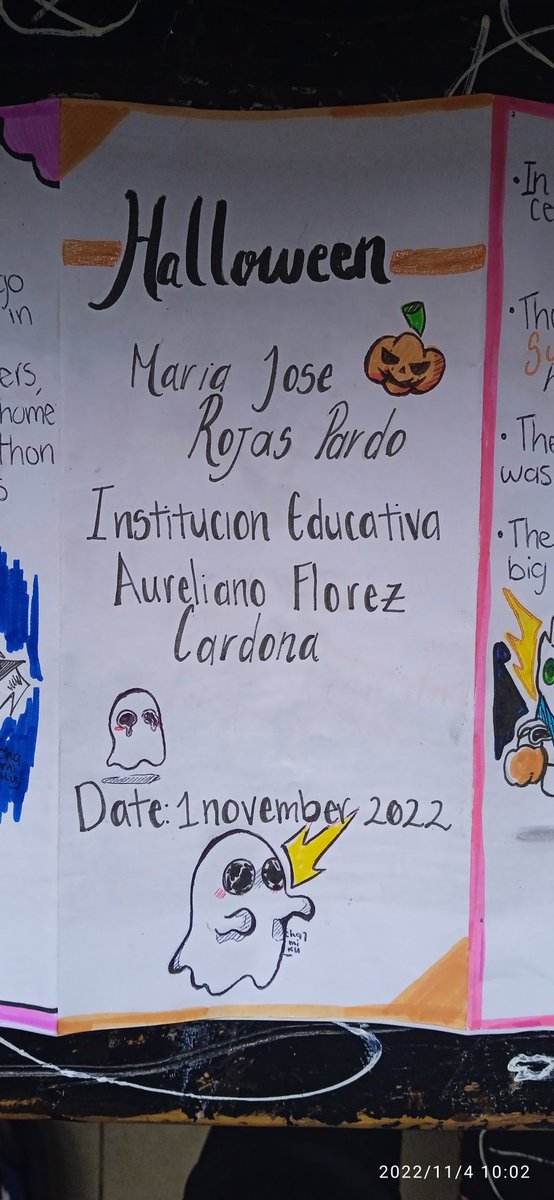 go
in
ers,
home
thon
s
Halloween
Maria Jose
Rojas Pardo
Institucion Educativa
Aureliano Florez
Cardona
Date: 1 november 2022
cha
mi
KU
In
ce
Tha
Su
A
The
was
The
big
2022/11/4 10:02